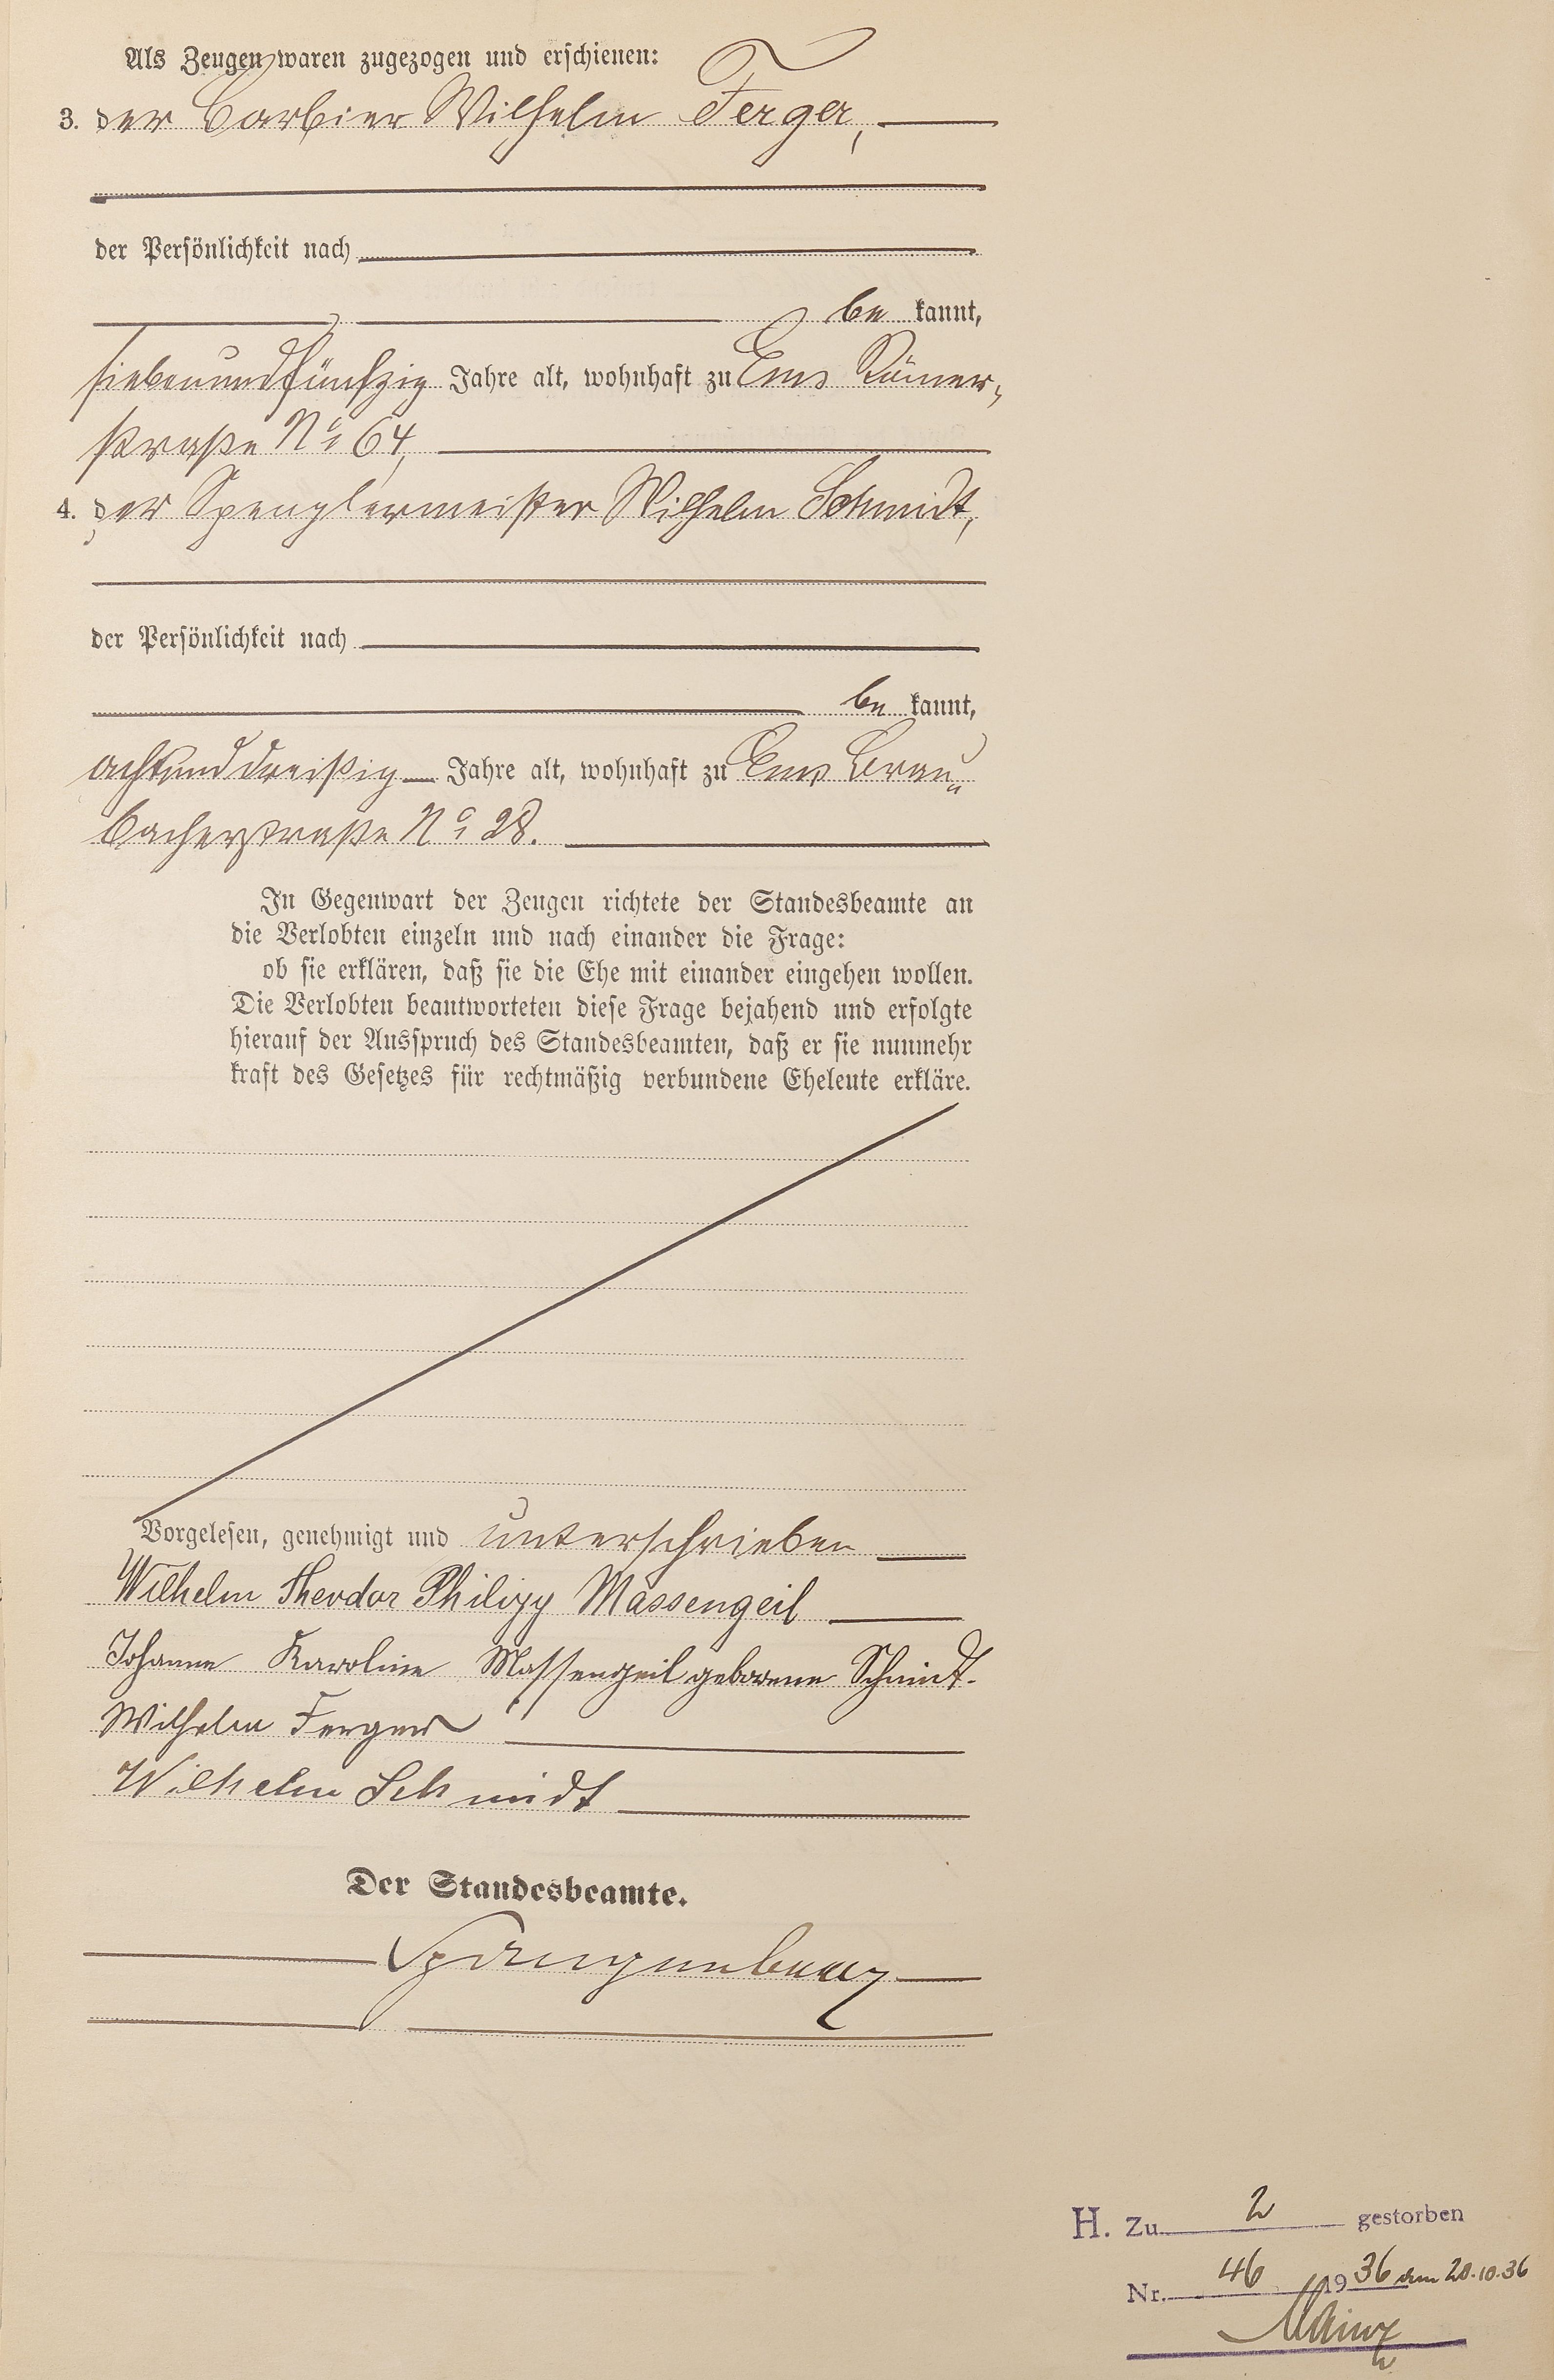 Als Zeugen waren zugezogen und erschienen:
3. der Barbier Wilhelm Ferger,
der Persönlichkeit nach
be kannt,
siebenundfünfzig Jahre alt, wohnhaft zu Ems Römer-
straße No 64,
4. der Spenglermeister Wilhelm Schmidt,
der Persönlichkeit nach
be kannt,
achtunddreißig Jahre alt, wohnhaft zu Ems Brau-
bacherstraße No 28.
In Gegenwart der Zeugen richtete der Standesbeamte an
die Verlobten einzeln und nach einander die Frage:
ob sie erklären, daß sie die Ehe mit einander eingehen wollen.
Die Verlobten beantworteten diese Frage bejahend und erfolgte
hierauf der Ausspruch des Standesbeamten, daß er sie nunmehr
kraft des Gesetzes für rechtmäßig verbundene Eheleute erkläre.
Vorgelesen, genehmigt und unterschrieben
Wilhelm Theodor Philipp Massengeil
Johanne Karoline Massengeil geborene Schmidt.
Wilhelm Ferger
Wilhelm Schmidt
Der Standesbeamte.
Spangenberg
H. Zu 2 gestorben
Nr. 46 1936 am 20.10.36
Mainz